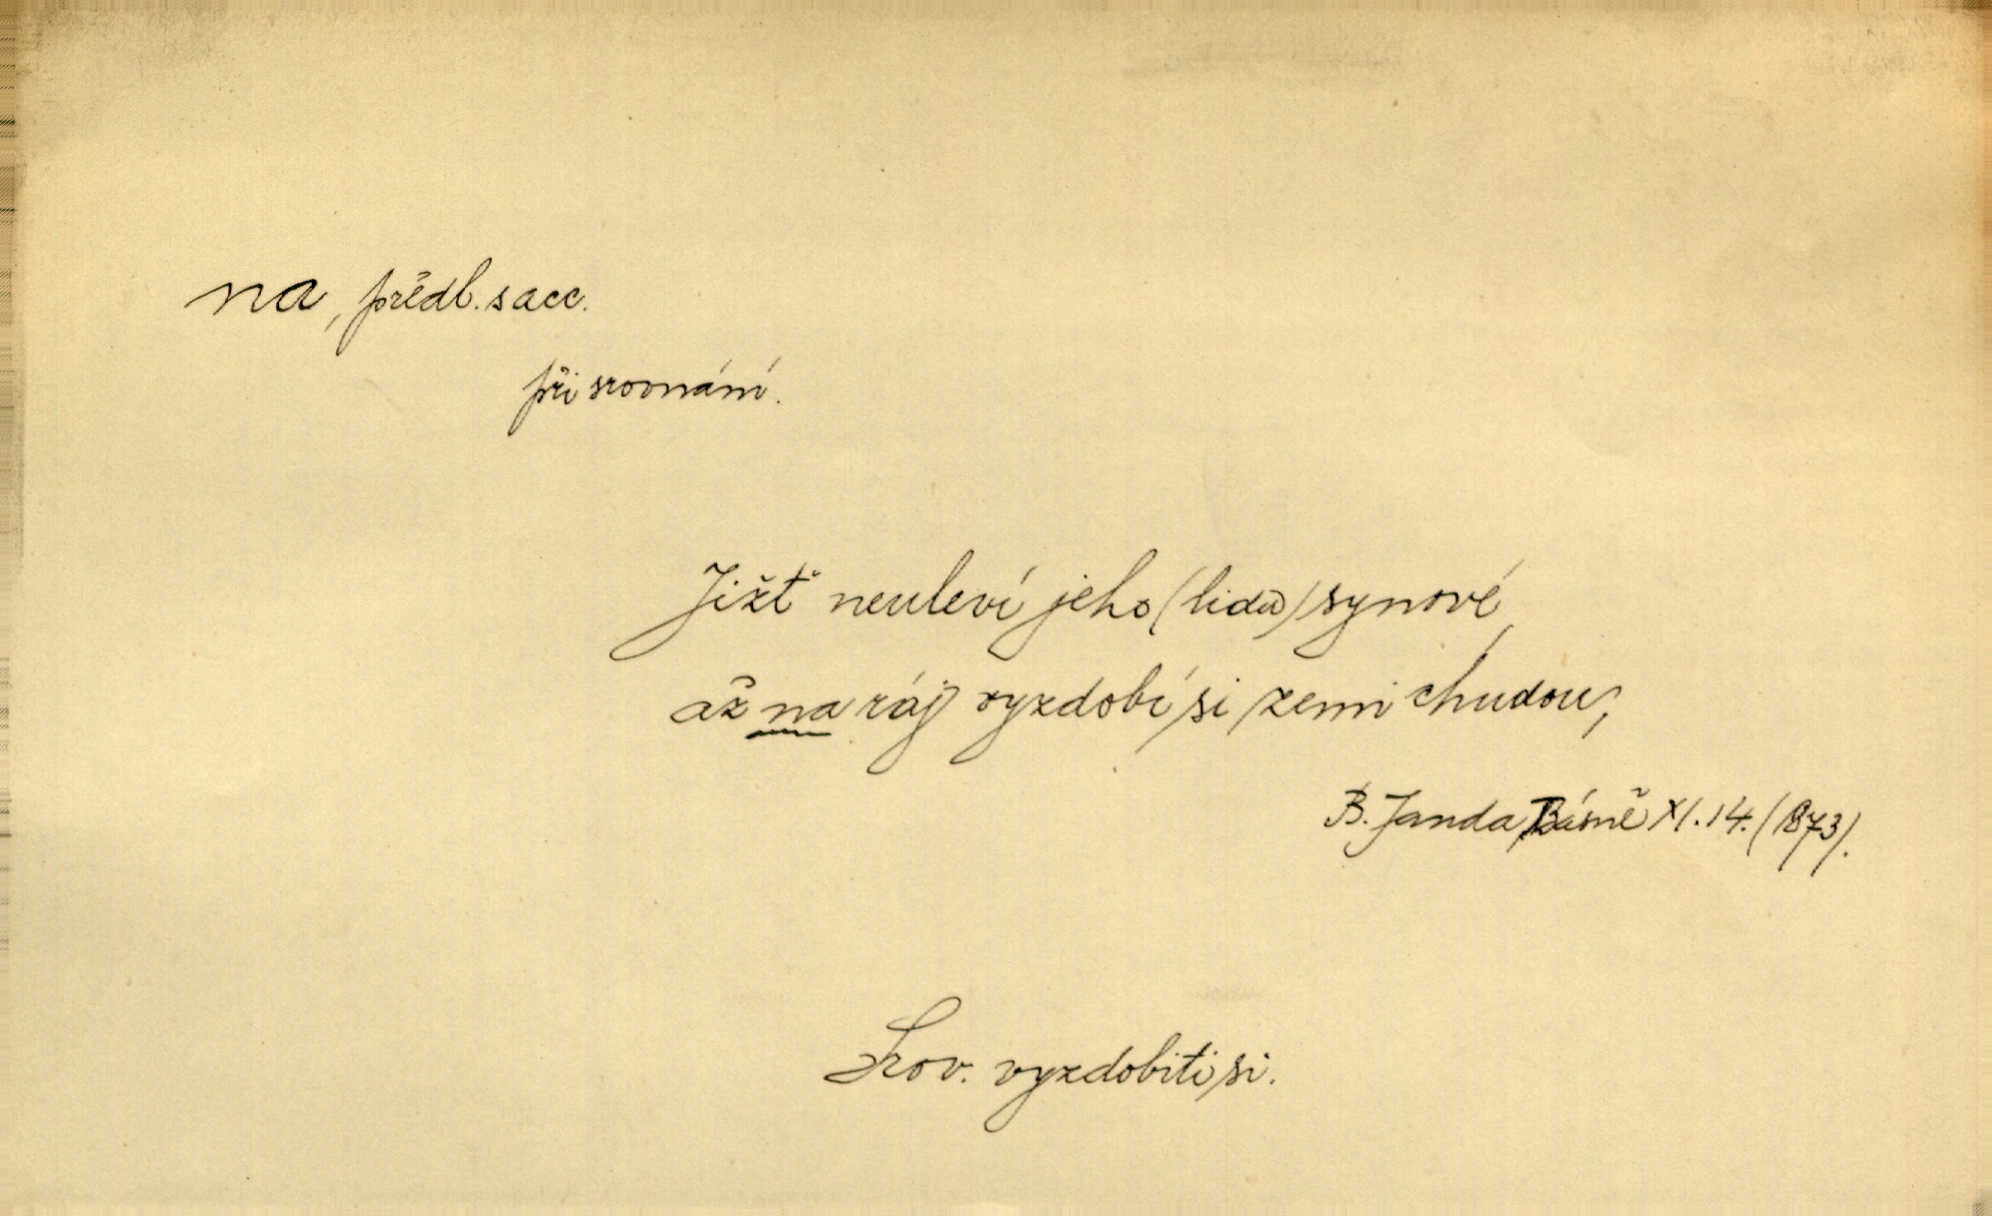 na, předl. s acc.
při srovnání.
Jižť neuleví jeho (lidu) synové,
až na ráj vyzdobí si zemi chudou;
B. Janda, Básně XI. 14. (1873).
Srov. vyzdobiti si.